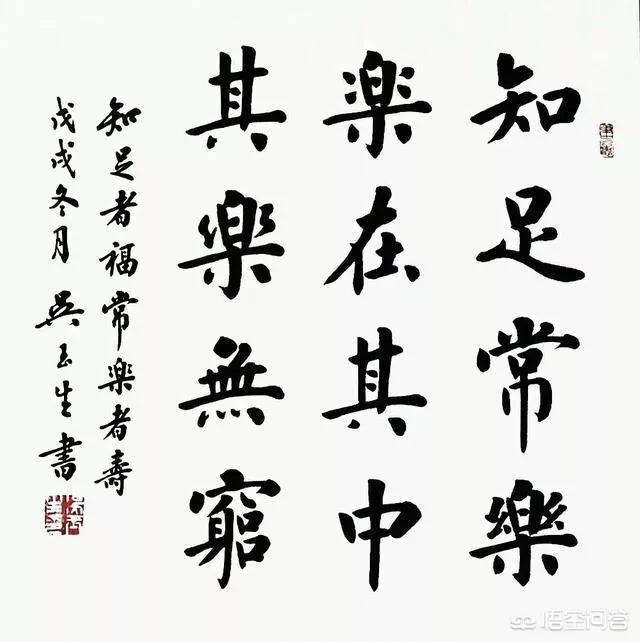 知足常樂
楽在其中
其樂無窮
知足者福常楽者壽
戊戌冬月 吳玉生書
悟空问答